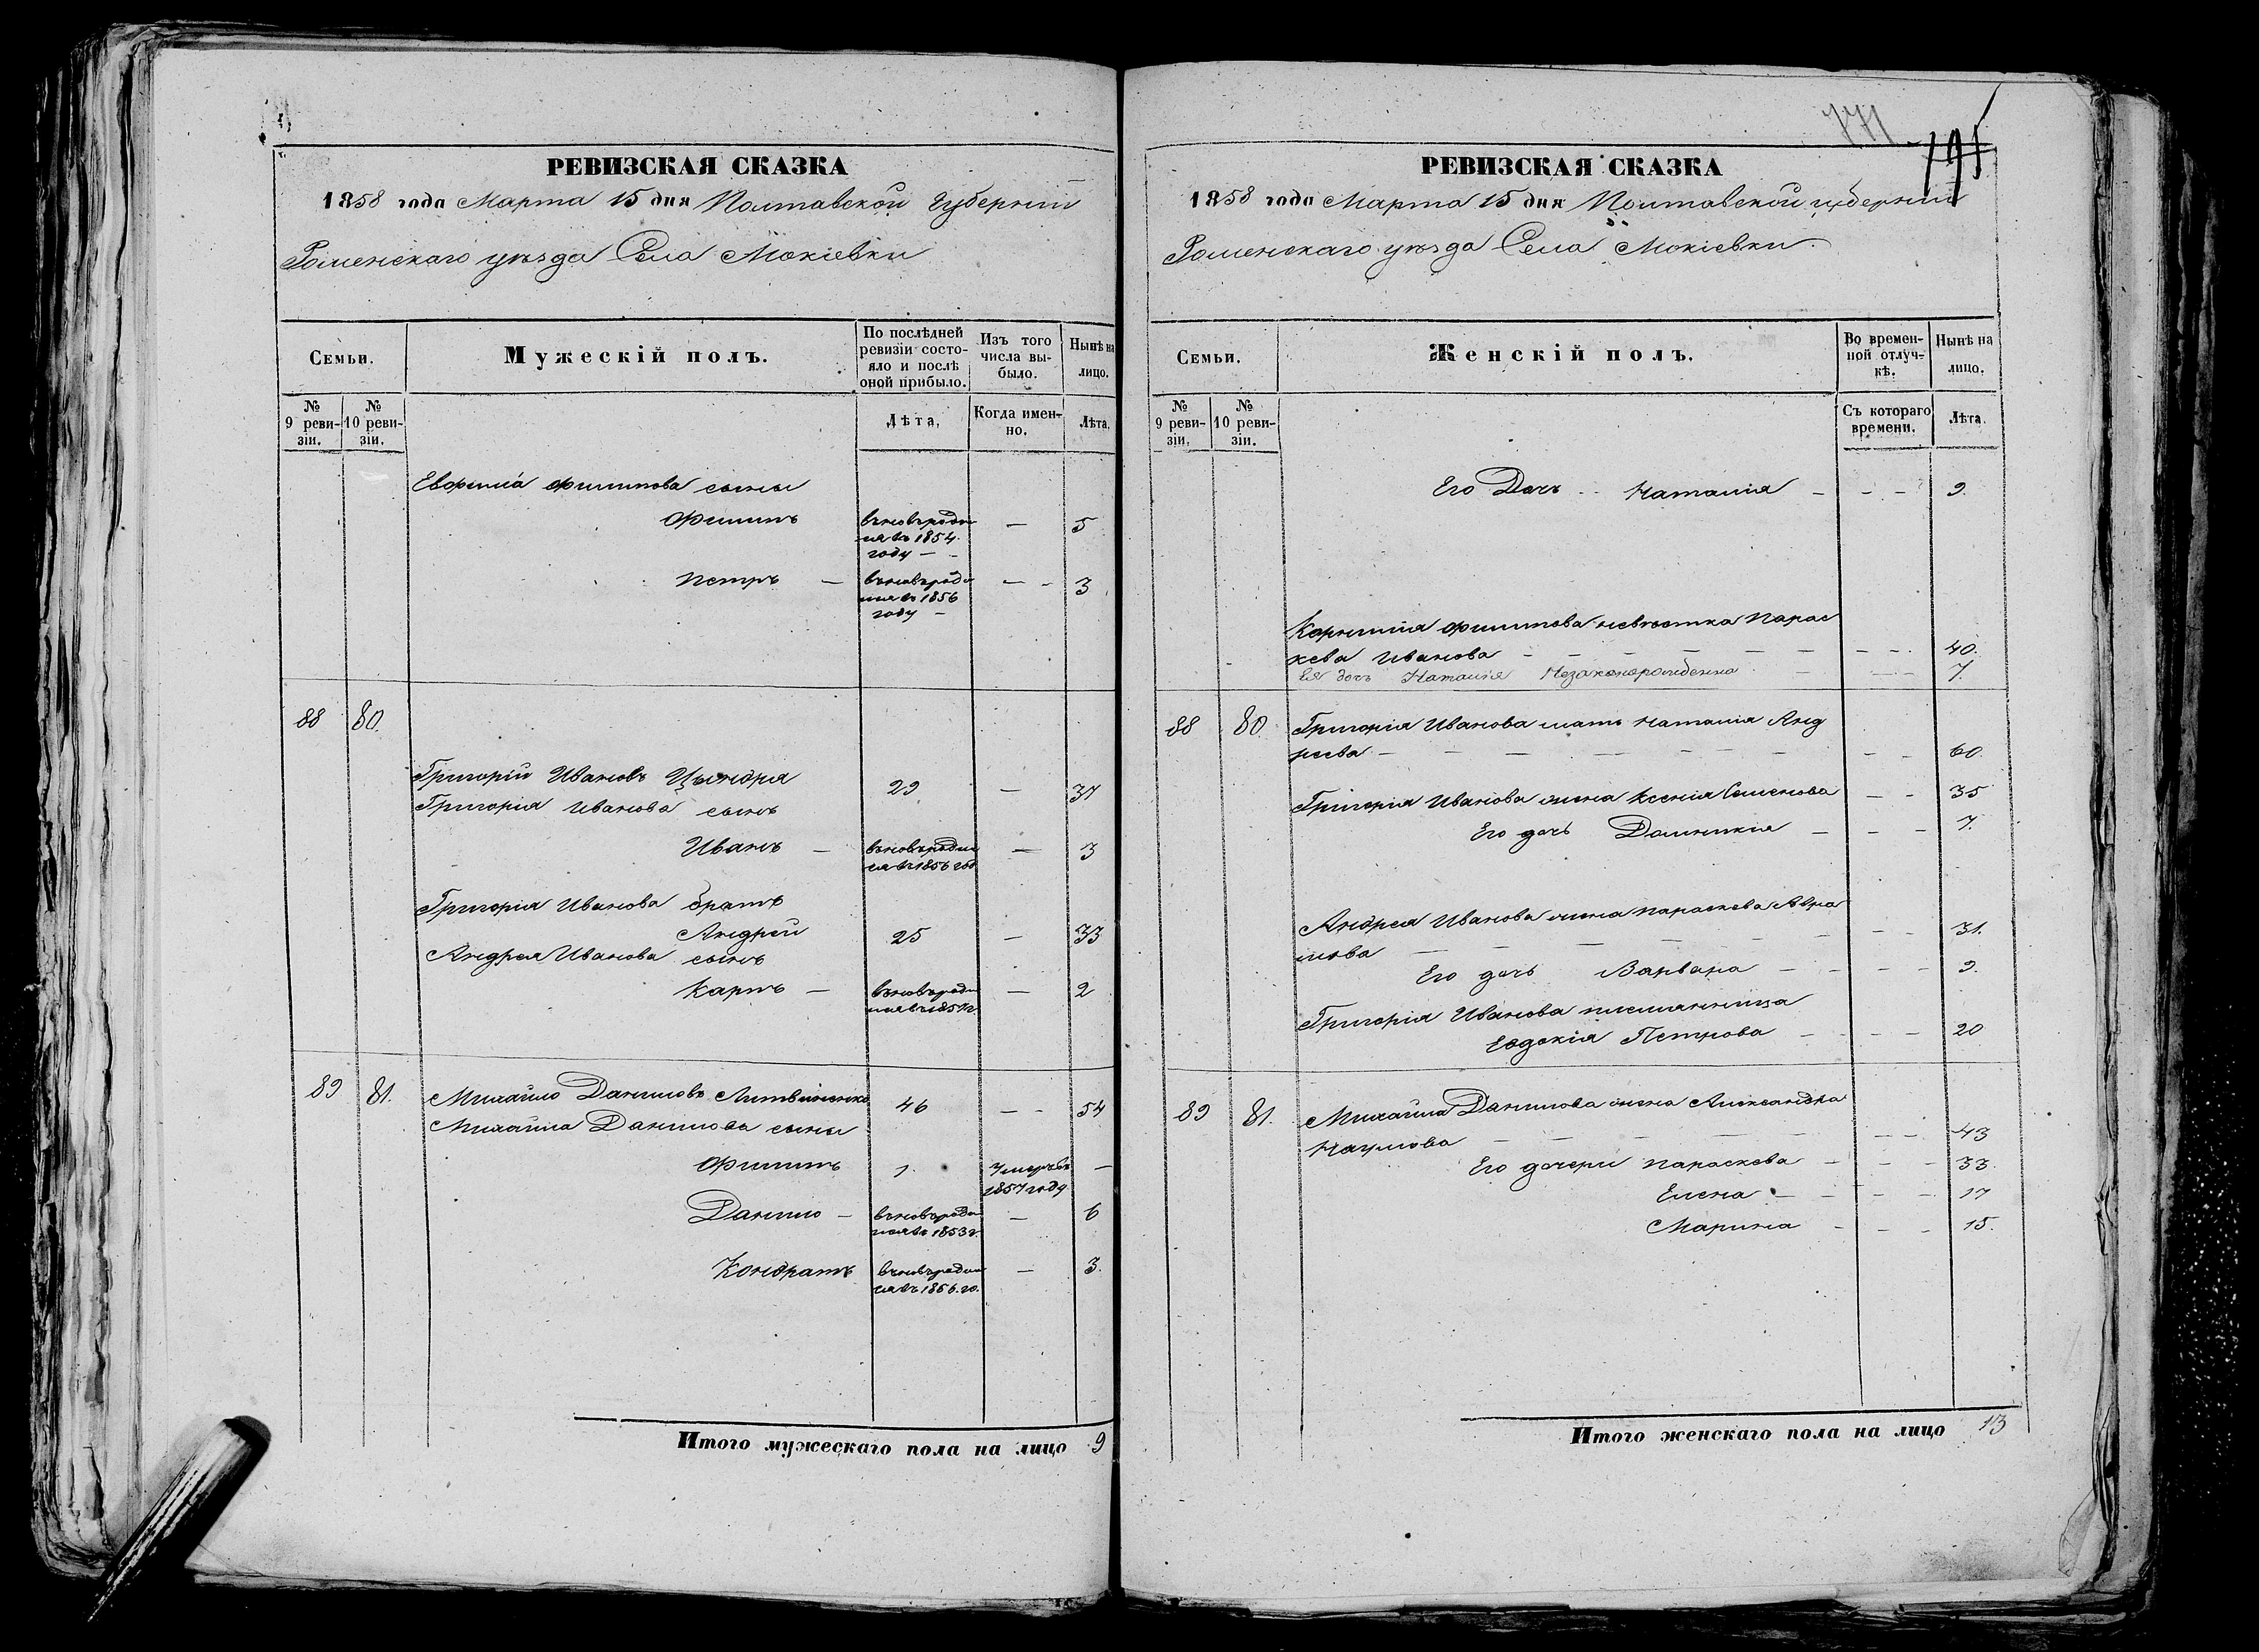 РЕВИЗСКАЯ СКАЗКА
1858 года Марта 15 дня Полтавской Губерніи
Роменскаго уѣзда Села Мокіевки
Семьи.
Мужескій полъ.
По послѣдней ревизіи состояло и послѣ оной прибыло.
Изъ того числа выбыло.
Нынѣ на лицо.
№ 9 ревизіи.
№ 10 ревизіи.
Лѣта,
Когда именно.
Лѣта.
Евфиміа Филипова сыны
Филипъ вновьроди 5
ся въ 1854.
году
Петръ вновьроди 3
лся въ 1856
году
88 80.
Григорій Ивановъ Цындря 29 37
Григорія Иванова сынъ
Иванъ вновьроди 3
ся въ 1856 год
Григорія Иванова братъ
Андрей 25 33
Андрея Иванова сынъ
Карпъ вновьроди 2
лся въ 1857 г.
89 81. Михайло Даниловъ Литвиненко 46 54
Михайла Данилова сыны
Филипъ 1. Умеръ въ
1857 году
Данило вновьроди 6
лся въ 1853 г.
Кондратъ вновьроди 3.
ся въ 1856. го.
Итого мужескаго пола на лицо 9
771
795
РЕВИЗСКАЯ СКАЗКА
1858 года Марта 15 дня Полтавской губерніи
Роменскаго уѣзда Села Мокіевки.
Семьи.
Женскій полъ.
Во временной отлучкѣ.
Нынѣ на лицо.
№ 9 ревизіи.
№ 10 ревизіи.
Съ котораго времени.
Лѣта.
Его Дочь Наталія 9.
Корнилія Филипова невѣстка Парас
кева Иванова 40.
Ея дочь Наталія Незаконорожденна 7.
88 80. Григорія Иванова мать Наталія Анд
реева 60.
Григорія Иванова жена Ксенія Семенова 35
Его дочь Домникия 7.
Андрея Иванова жена Параскева Авра
мова 31.
Его дочь Варвара 9.
Григорія Иванова племянница
Евдокія Петрова 20
89 81. Михайла Данилова жена Александра
Наумова 43
Его дочери Параскева 33.
Елена 17
Марина 15.
Итого женскаго пола на лицо 13